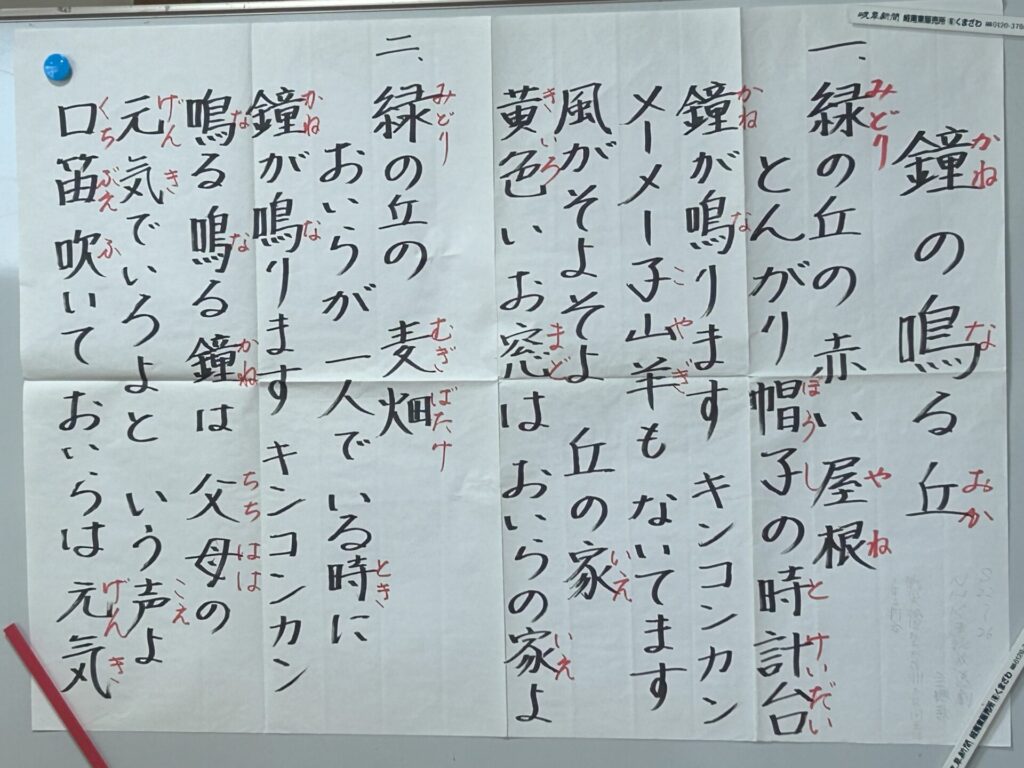 鐘の鳴る丘
一、緑の丘の 赤い屋根
とんがり帽子の時計台
鐘が鳴ります キンコンカン
メーメー子山羊も ないてます
風がそよそよ 丘の家
黄色いお窓は おいらの家よ
二、緑の丘の 麦畑
おいらが 一人で いる時に
鐘が鳴ります キンコンカン
鳴る鳴る鐘は 父母の
元気でいろよと いう声よ
口笛吹いて おいらは元気
かね な おか
みどり やね
ぼうし とけいだい
かね な
こやぎ
いえ
きいろ まど いえ
みどり むぎばたけ
とき
かね な
な な かね ちちはは
げんき こえ
くちぶえふ げんき
岐阜新聞 ㈲くまざわ
岐阜新聞 ㈲くまざわ